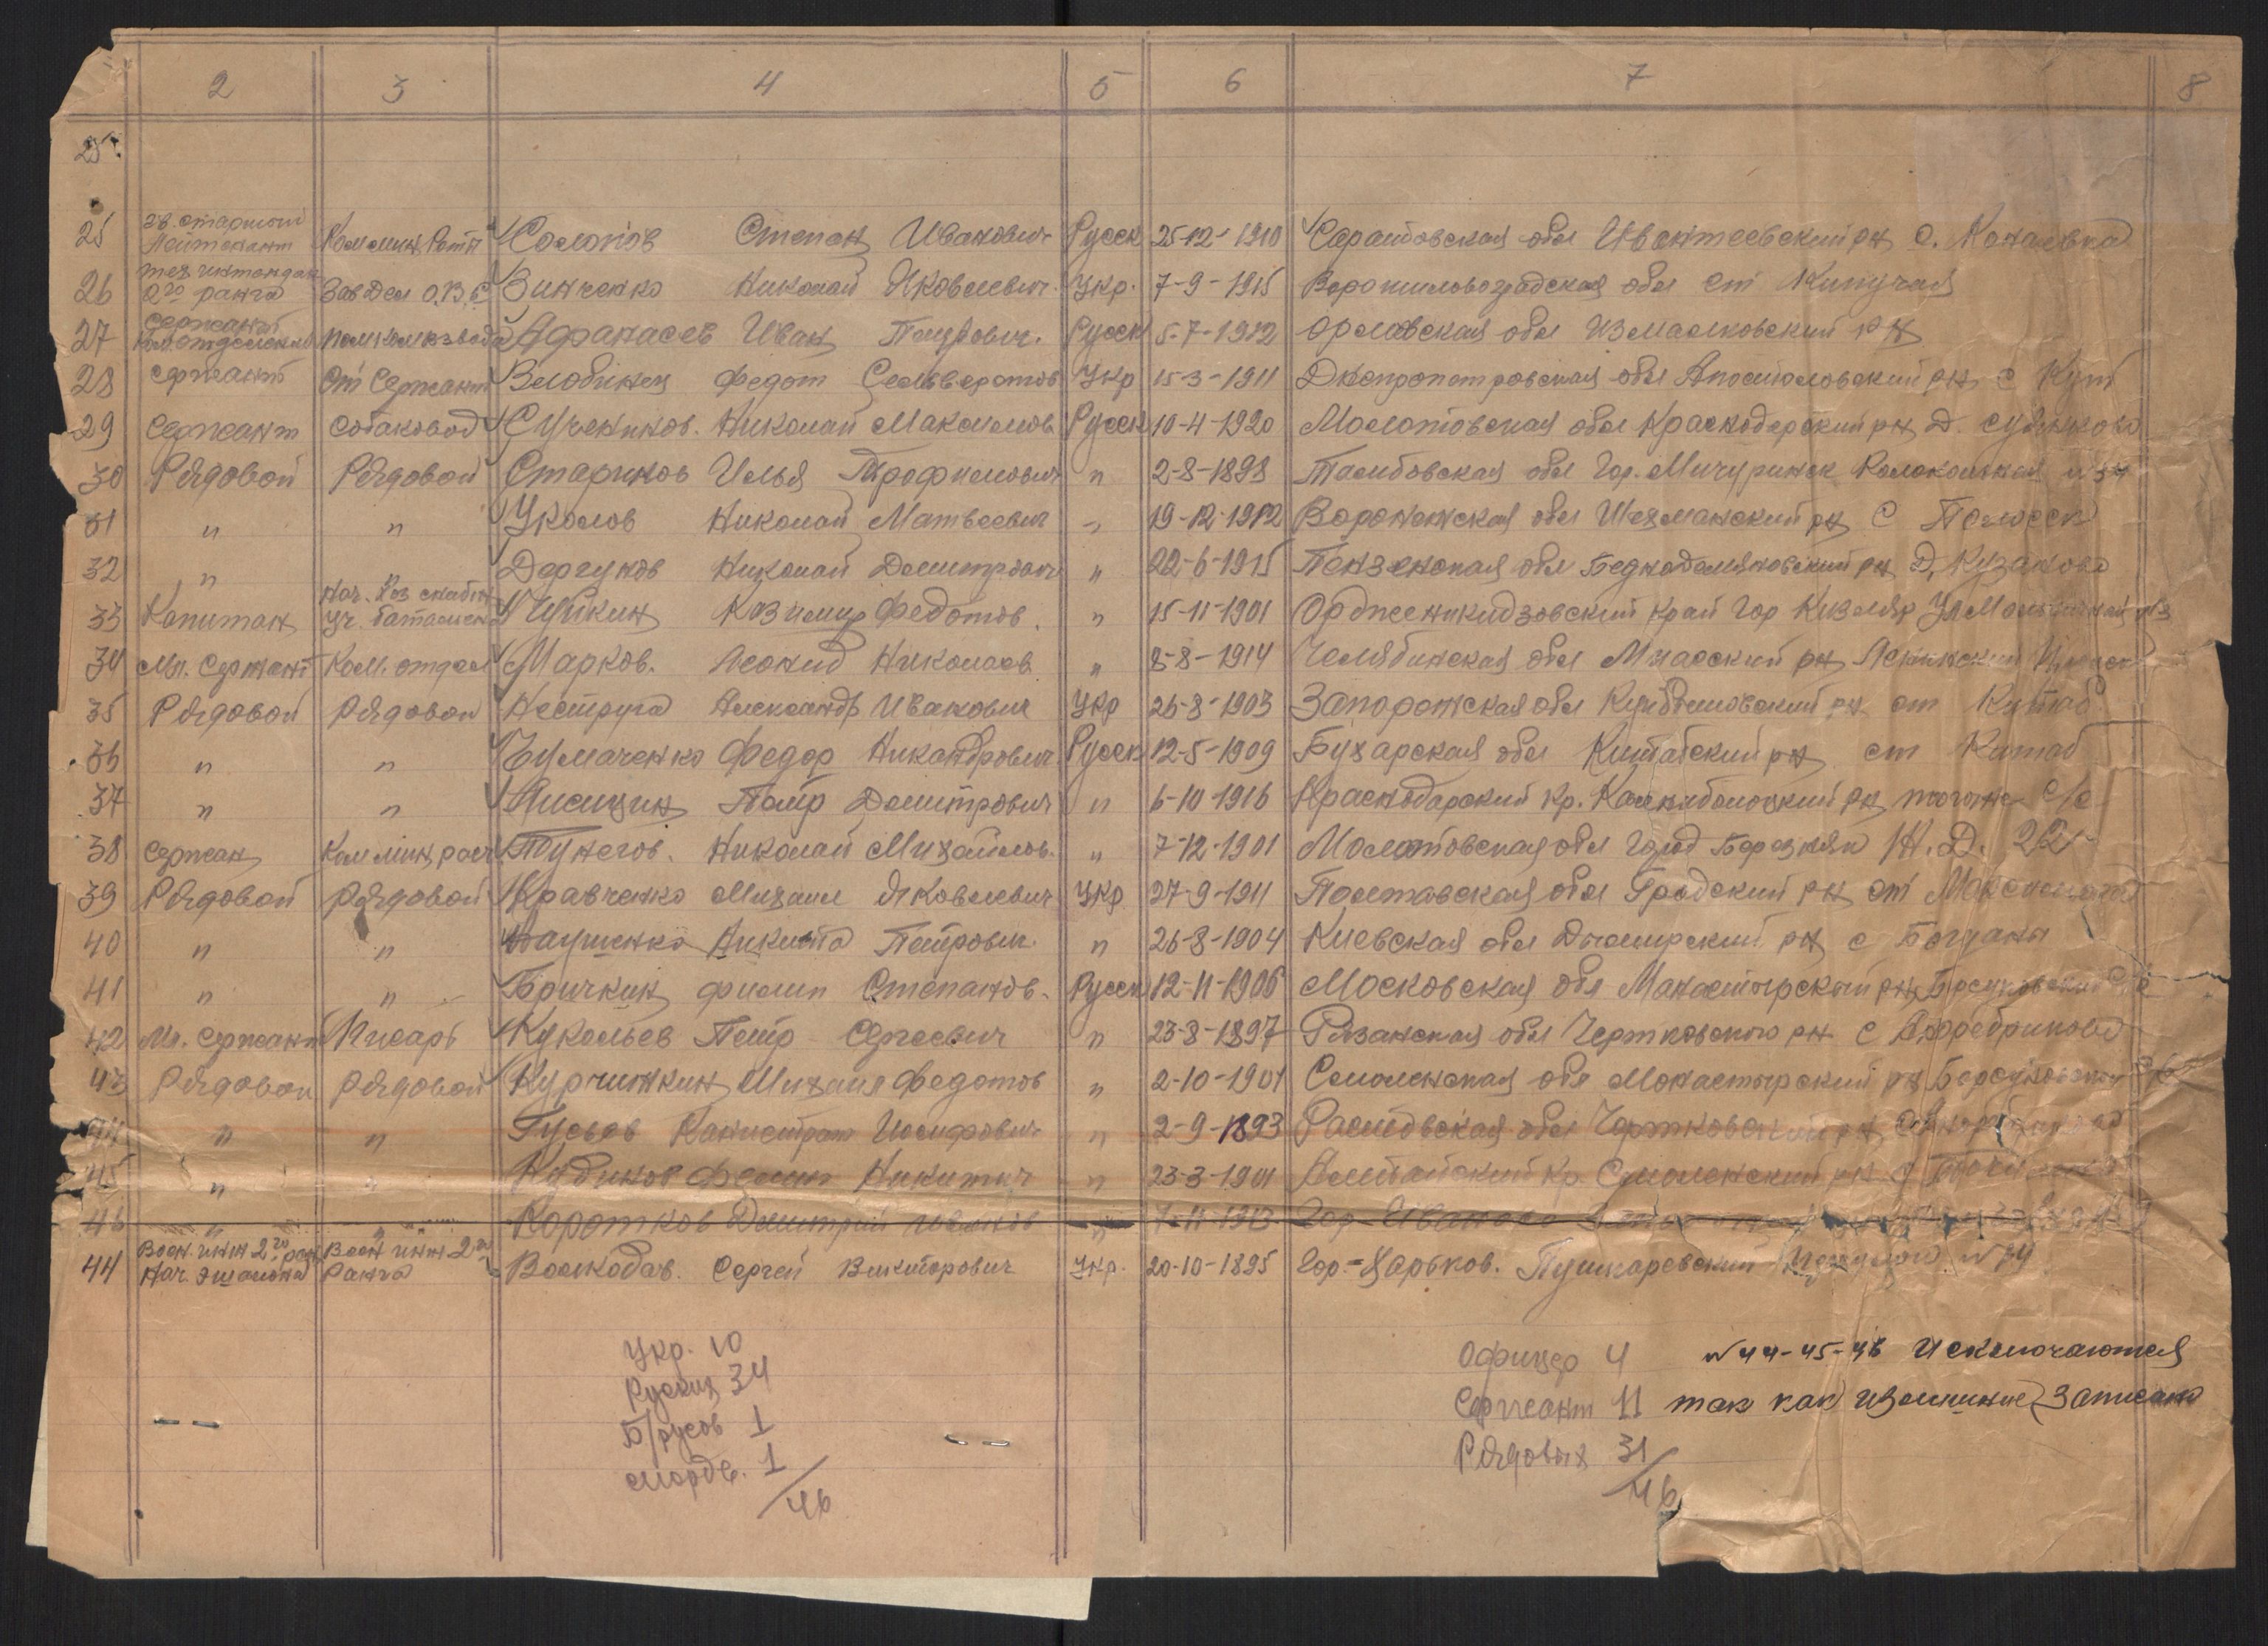 2 3 4 5 6 7 8
25
25 гв. старший Лейтенант Ком мин. Роты Солопов Степан Иванович Русск 25-12-1910 Саратовская обл Ивантеевский рн с. Канаевка
26 тех интендан 2го ранга Зав Дел О.В.С Зинченко Николай Яковлевич. Укр. 7-9-1915 Ворошиловоградская обл ст Кипучая
27 Сержант Ком отделения пом ком взвода Афанасев Иван Петрович. Русск 5-7-1912 Орловская обл Измалковский рн
28 сержант Ст Сержант Федот Сельверстов Укр 15-3-1911 Днепропетровская обл Апостоловский рн с Кут
29 Сержант Собаковод Сученинов. Николай Максимов Русск 10-4-1920 Молотовская обл Краснодарский рн Д.
30 Рядовой Рядовой Стариков Илья Трофимович " 2-8-1898 Тамбовская обл Гор. Мичуринск Колокольная № 34
31 " " Уколов Николай Матвеевич " 19-12-1912 Воронежская обл Шехманский рн С
32 " Дергунов Николай Дмитрович " 22-6-1915 Пензенская обл Беднодемяновский рн Д, Кузаково
33 Капитан Нач. Хоз снабж Уч. батальон Чуйкин Козимир Федотов. " 15-11-1901 Орджоникидзовский край Гор Кизляр Ул
34 Мл. Сержант Ком. отдел Марков. Леонид Николаев " 8-8-1914 Челябинская обл Миасский рн Ленинский
35 Рядовой Рядовой Неструга Александр Иванович Укр 26-8-1903 Запорожская обл Куйбышовский рн ст
36 " " Чумаченко Федор Никандрович Русск 12-5-1909 Бухарская обл Китабский рн ст Китаб
37 " " Лисицин Петр Дмитрович " 6-10-1916 Краснодарский Кр. рн с/с
38 Сержан Ком мин, рас Тунегов. Николай Михайлов. " 7-12-1901 Молотовская обл Город Березняк Ж.Д. 22
39 Рядовой Рядовой Кравченко Михаил Яковлевич Укр 27-9-1911 Полтавская обл Градский рн ст
40 " " Никита Петрович. " 26-8-1904 Киевская обл Дымирский рн с Богданы
41 " " Бричкин филип Степанов. Русск 12-11-1906 Московская обл Манастырский рн
42 Мл. Сержант Писарь Кукольев Петр Сергеевич " 23-8-1897 Рязанская обл Чертковского рн с
43 Рядовой Рядовой Курчинкин Михаил Федотов " 2-10-1901 Смоленская обл Монастырский рн
44 " " Гусьев Калистрат Иосифович " 2-9-1893 Ростовская обл Чертковский рн
45 " " Кудинов Филип Никитич " 23-3-1901 Алтайский Кр. Смоленский рн с
46 " " Коротков Дмитрий Иванов " 7-11-1913 Гор Иваново
44 Воен. инж 2го ран Нач. эшалона Воен инж 2го Ранга Волкодав. Сергей Викторович Укр. 20-10-1895 Гор.-Харьков. Пушкаревский № 34
Укр. 10
Руских 34
Б/русов 1
мордв. 1
46
Офицер 4
Сержант 11
Рядовых 31
46
№ 44-45-46 исключаются
так как излишне записаны